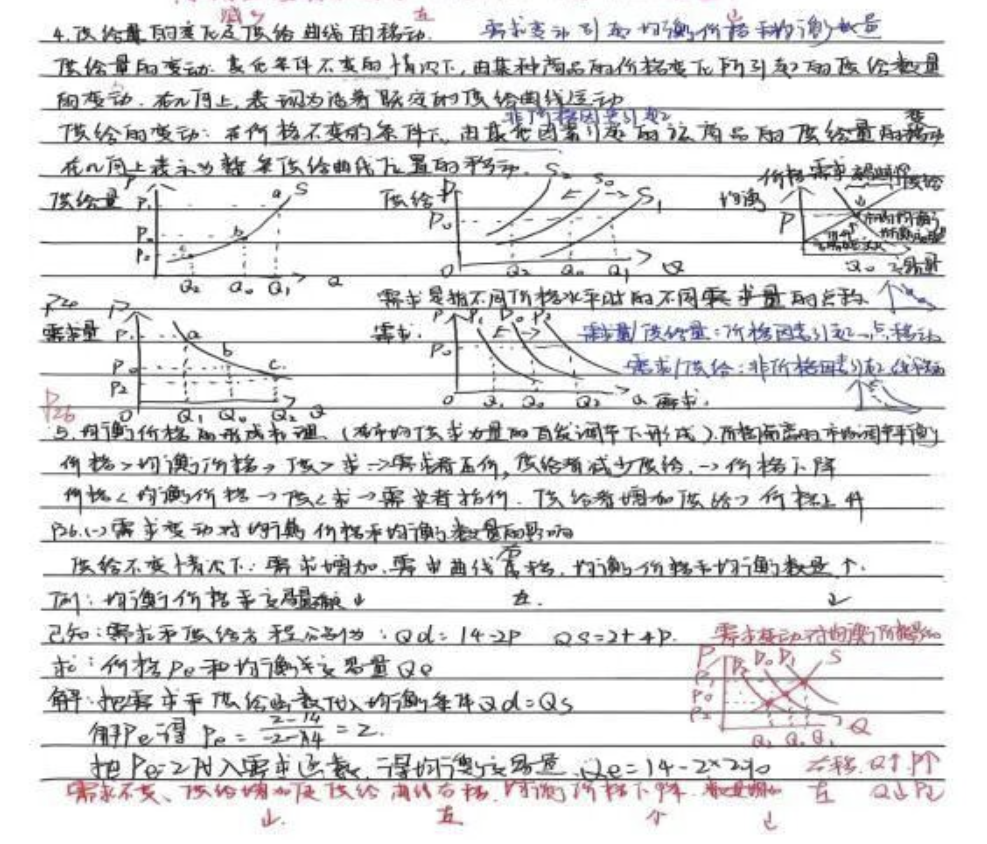 减少 左 ↓
4.供给量的变化及供给曲线的移动. 需求变动引起均衡价格和均衡数量
供给量的变动: 其它条件不变的情况下,由某种商品的价格变化所引起的供给数量
的变动. 在几何上,表现为沿着既定的供给曲线运动
非价格因素引起
供给的变动: 在价格不变的条件下,由其它因素引起的该商品的供给量的变动
在几何上表示为整条供给曲线位置的移动.
供给量 P₁ a S 供给 P S₂ S₀ S₁ 均衡 价格 需求 供给
P₀ b P₀ P
P₂ c
Q₂ Q₀ Q₁ Q O Q₂ Q₀ Q₁ Q Q₀
P24 P 需求是指不同价格水平时的不同需求量的
需求量 P₁ a 需求. P P₁ P₀ P₂ 需求量/供给量:价格因素引起 点移动
P₀ b P₀ 需求/供给:非价格因素引起
P₂ c
P26 O Q₁ Q₀ Q₂ Q O Q₁ Q₀ Q₂ Q 需求.
5.均衡价格的形成机理.(在市场供求力量的自发调节下形成).
价格>均衡价格→供>求→需求者压价,供给者减少供给,→价格下降
价格<均衡价格→供<求→需求者抬价.供给者增加供给→价格上升
P26.(一)需求变动对均衡价格和均衡数量的影响
右
供给不变情况下:需求增加,需求曲线右移,均衡价格和均衡数量↑.
例:均衡价格和交易量 ↓ 左. ↓
已知:需求和供给方程分别为:Qd=14-2P Qs=2+4P. 需求变动对均衡价格影响
求:价格Pe和均衡交易量Qe P P₂ D₀ D₁ S
解:把需求和供给函数代入均衡条件Qd=Qs P₁
P₀
解Pe得 Pe = (2-14)/(-2-4) = 2. P₂ Q
Q₂ Q₀ Q₁
把Pe=2代入需求函数,得均衡交易量 Qe=14-2×2=10 右移 Q↑ P↑
需求不变、供给增加使供给曲线右移,均衡价格下降.数量增加 左 Q↓ P↓
↓. 左 个 ↓